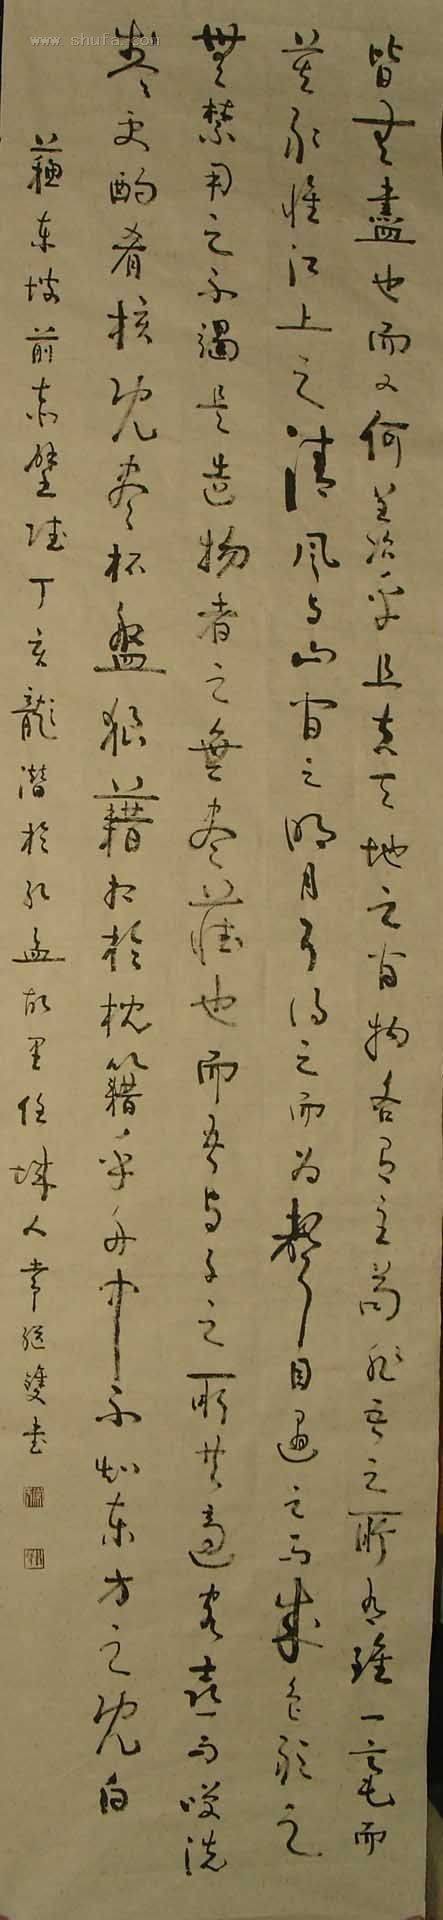 www.shufa.com
皆無盡也而又何羨乎且夫天地之間物各有主苟非吾之所有雖一毫而
莫取惟江上之清風與山間之明月耳得之而為聲目遇之而成色取之
無禁用之不竭是造物者之無盡藏也而吾與子之所共適客喜而笑洗
盞更酌肴核既盡杯盤狼藉相於枕籍乎舟中不知東方之既白
蘇東坡前赤壁賦丁亥龍潛於孔孟故里任城人常雙書